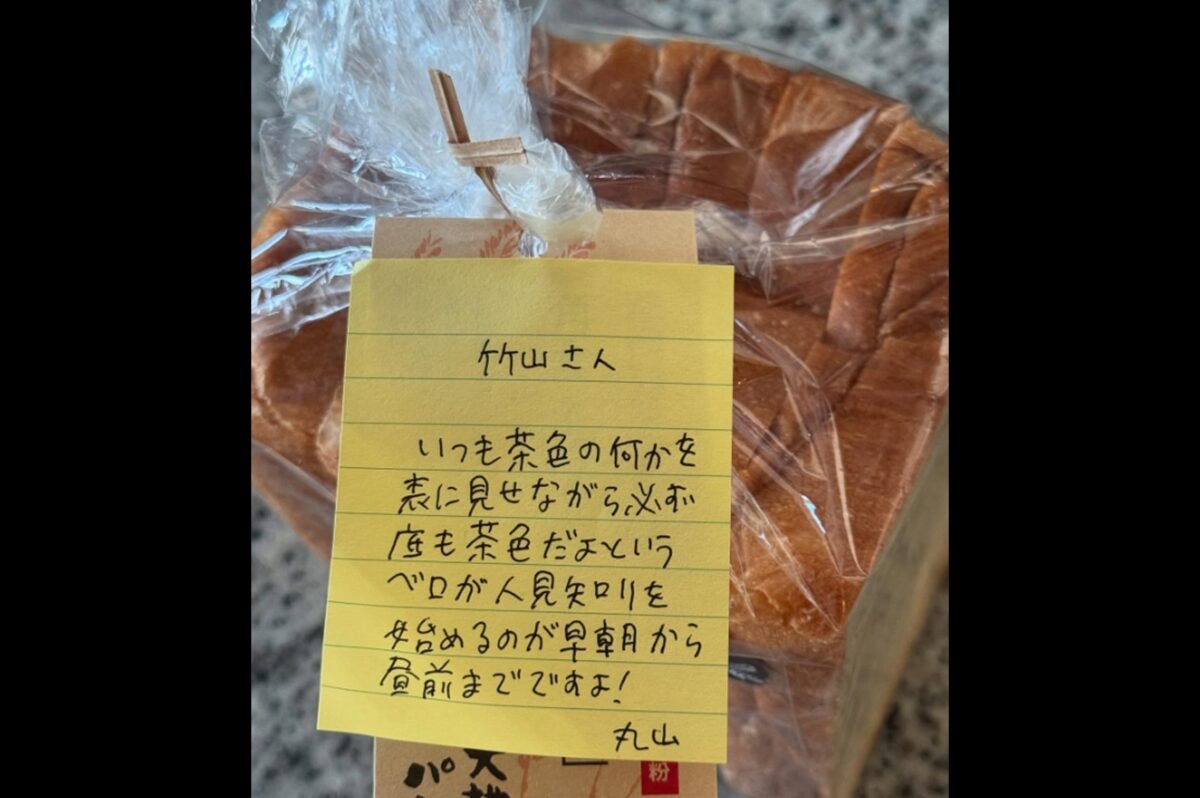 竹山さん
いつも茶色の何かを
表に見せながら、必ず
底も茶色だよという
ベロが人見知りを
始めるのが早朝から
昼前までですよ!
丸山
粉